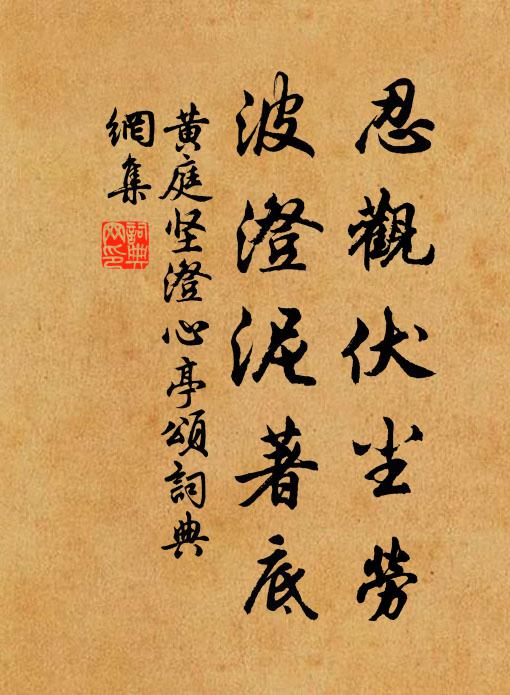 忍觀伏尘勞
波澄泥著底
黄庭坚澄心亭頌詞典
網集
詞典
网印